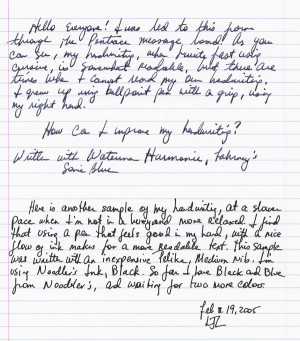 Hello Everyone! I was led to this forum
through the Pentrace message board! As you
can see, my handwriting, when writing fast using
cursive, is somewhat readable, but there are
times when I cannot read my own handwriting.
I grew up using ballpoint pen with a grip, using
my right hand.
How can I improve my handwriting?
Written with Waterman Harmonie, Fahrney's
Sonic Blue
Here is another sample of my handwriting, at a slower
pace when I'm not in a hurry and more relaxed. I find
that using a pen that feels good in my hand, with a nice
flow of ink makes for a more readable text. This sample
was written with an inexpensive Pelika, Medium Nib. I'm
using Noodler's Ink, Black. So far I have Black and Blue
from Noodler's, and waiting for two more colors.
Feb 19, 2005